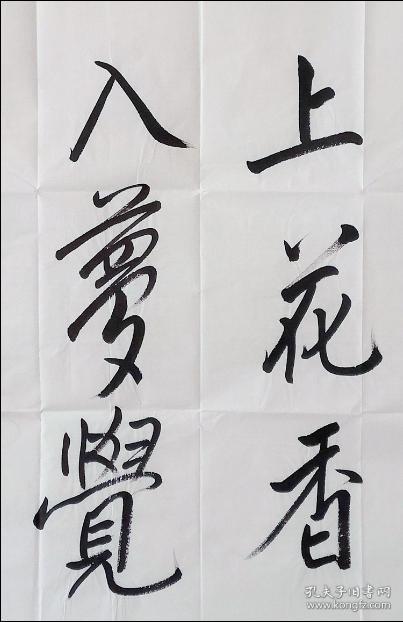 上花香
入夢覺
孔夫子旧书网
www.kongfz.com